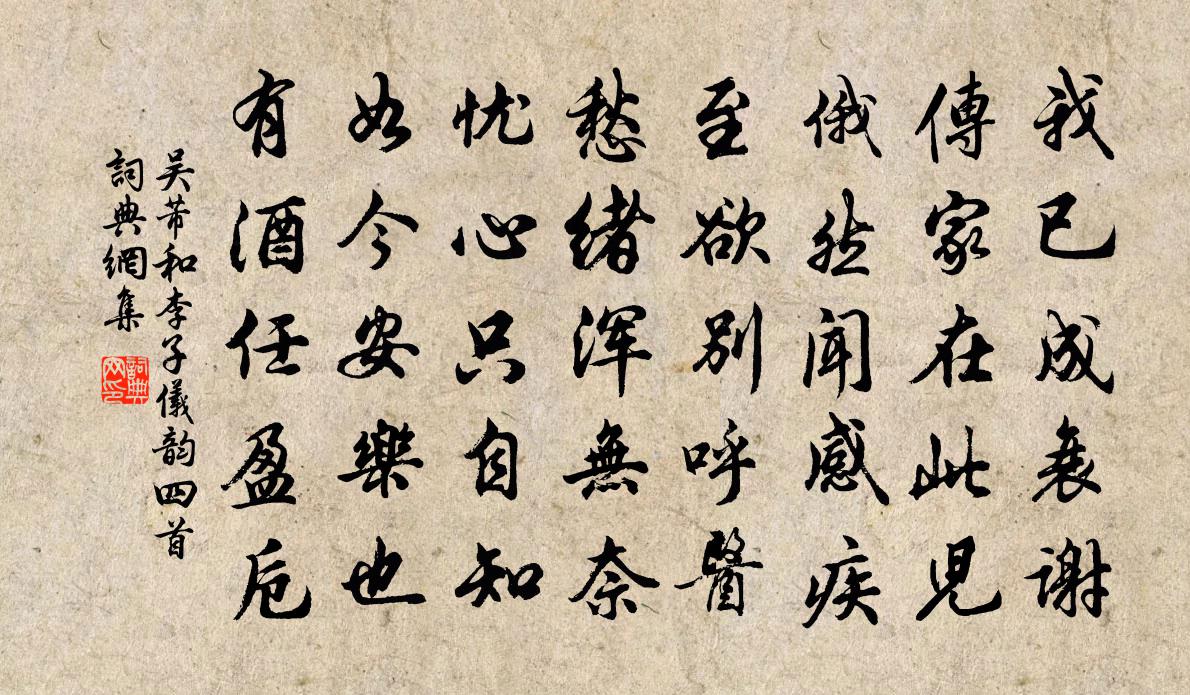 我已成衰谢
傳家在此兒
俄然闻感疾
至欲别呼醫
愁绪浑無奈
忧心只自知
如今安樂也
有酒任盈卮
吴芾和李子儀韵四首
詞典網集
詞典网印